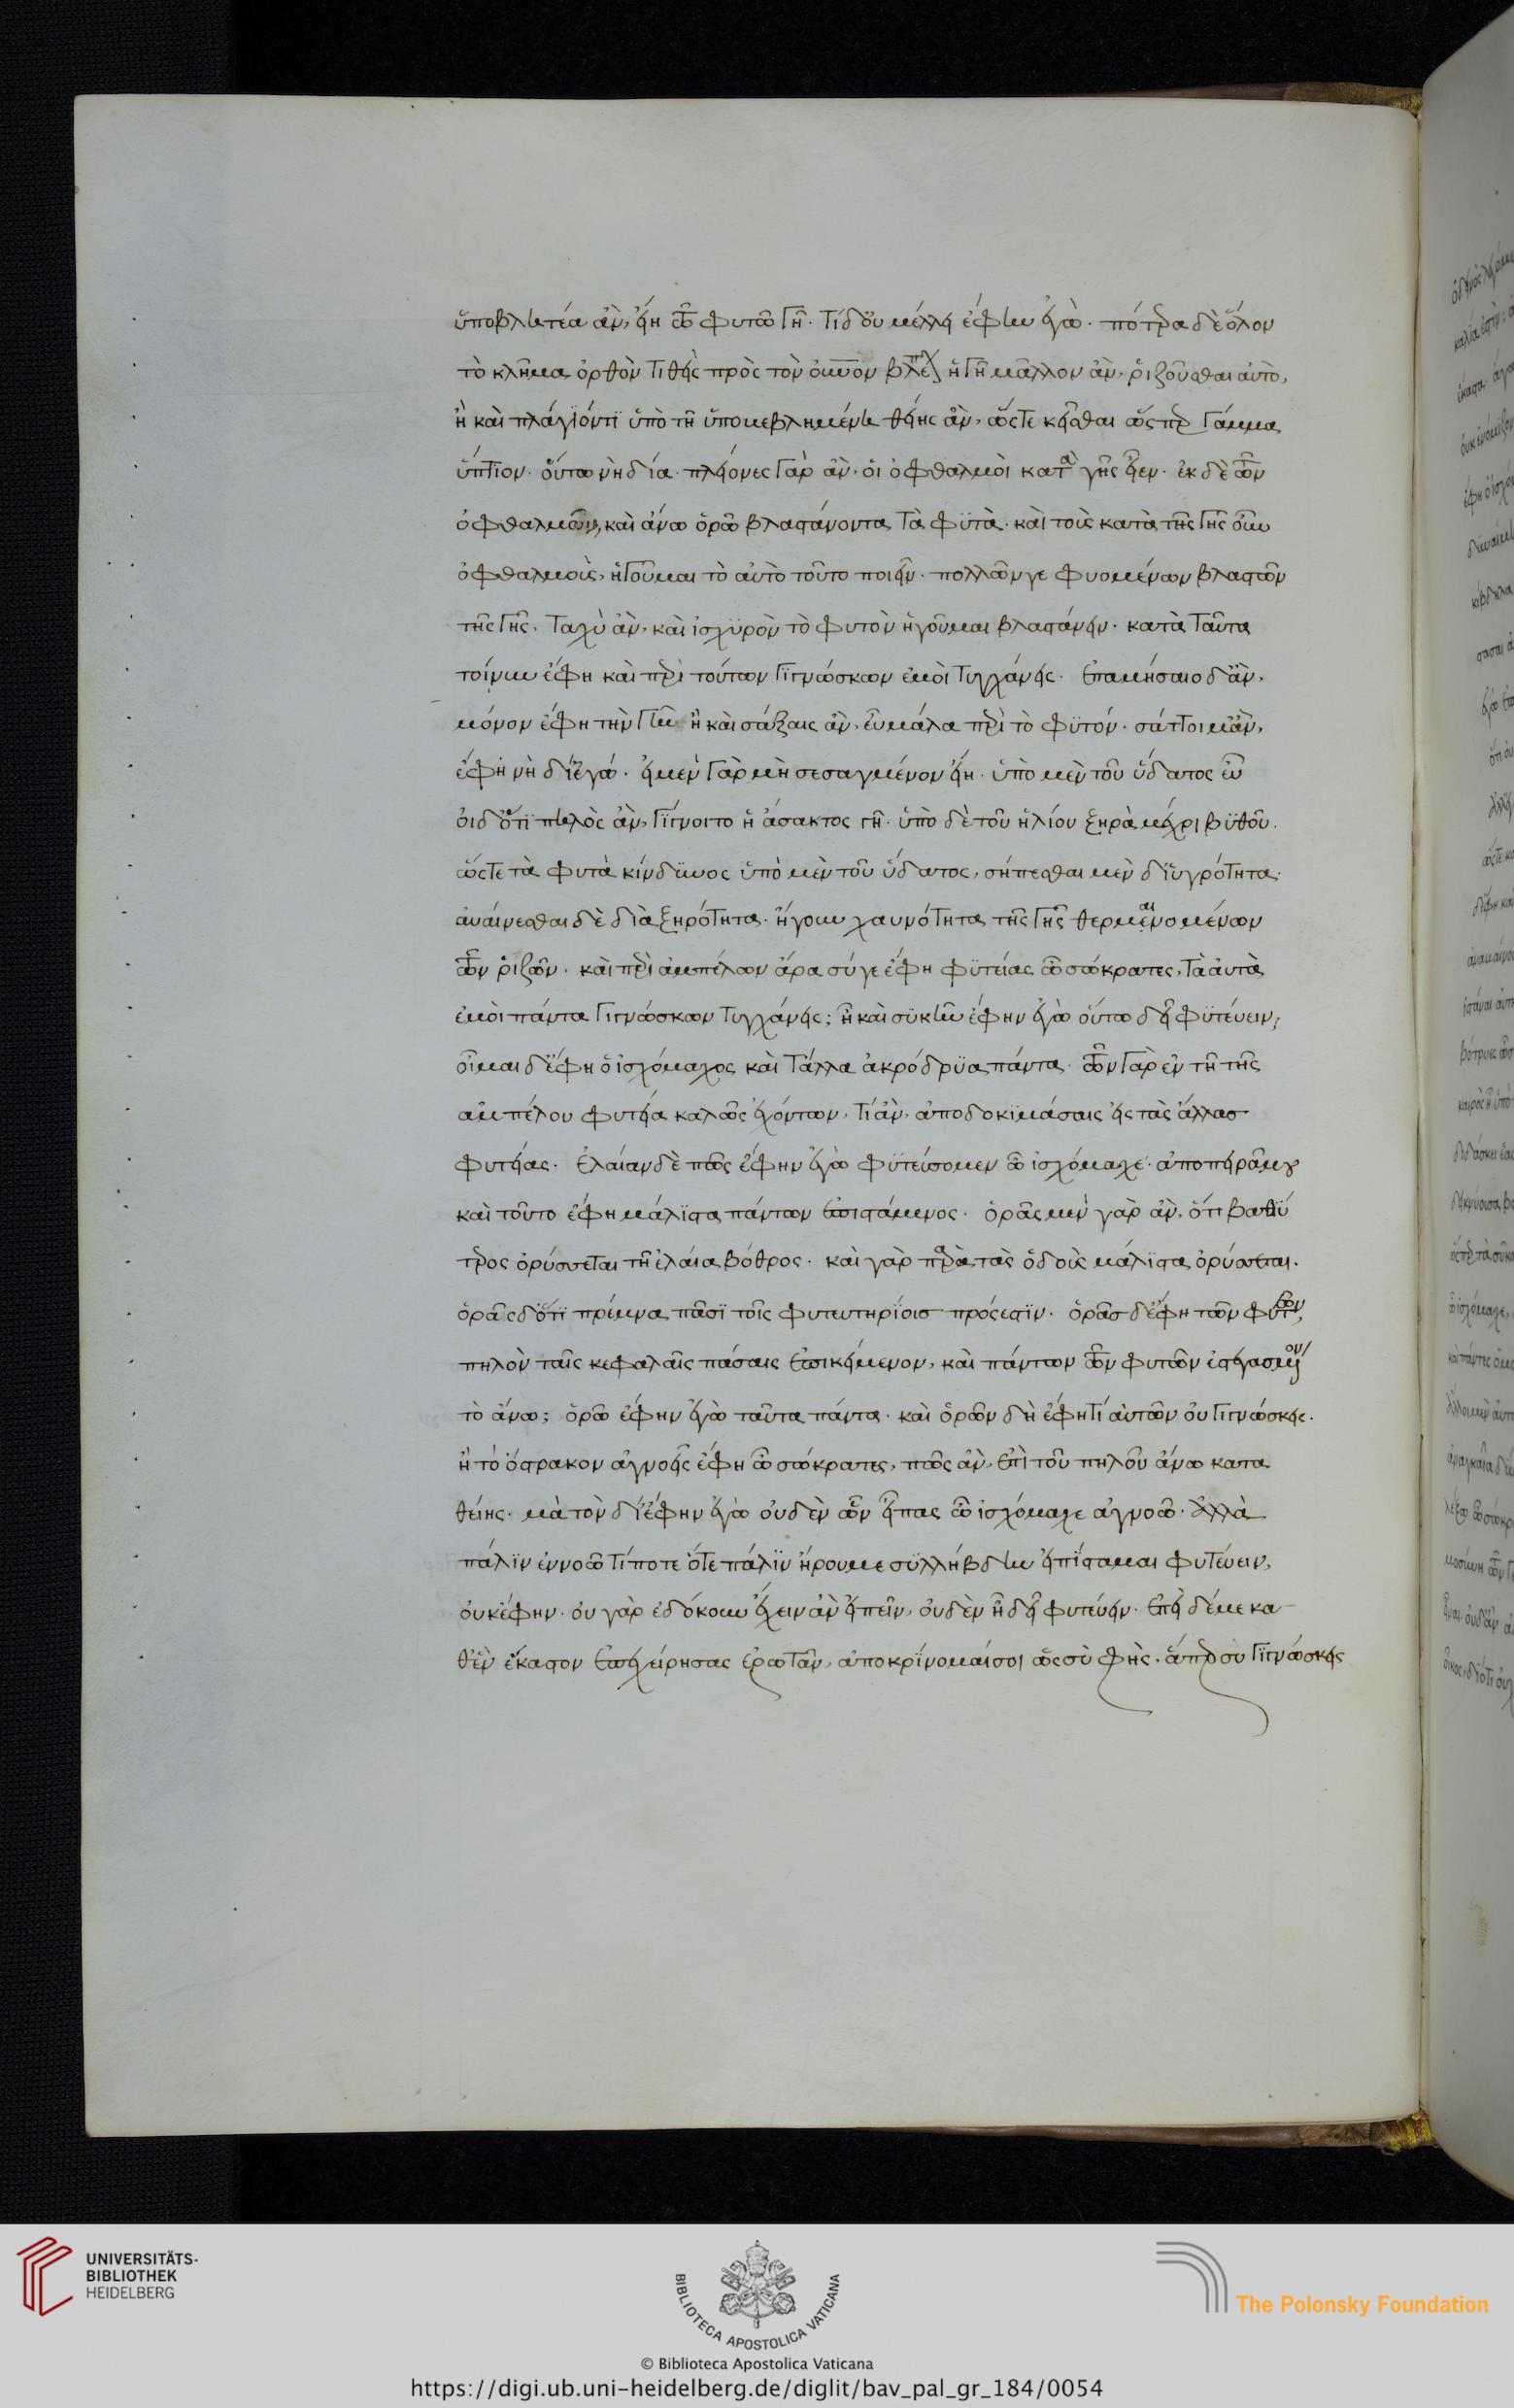 ὑποβλητέα ἂν, εἴη τῶ φυτῶ γῆ. τί δ' οὐ μέλλει ἔφην ἐγὼ. πότερα δὲ ὅλον
τὸ κλῆμα ὀρθὸν τιθεὶς πρὸς τὸν οὐνον βλέπον ἡγῆ μᾶλλον ἂν, ῥιζοῦσθαι αὐτὸ,
ἢ καὶ πλάγιόν τι ὑπὸ τῆ ὑπομεβλημένη θείης ἂν, ὥστε κεῖσθαι ὥσπερ γάμμα
ὕπτιον. οὕτω νὴ δία. πλείονες γὰρ ἂν, οἱ ὀφθαλμοὶ κατὰ γῆς εἶεν. ἐκ δὲ τῶν
ὀφθαλμῶν, καὶ ἄνω ὁρῶ βλαστάνοντα τὰ φυτὰ. καὶ τοὺς κατὰ τῆς γῆς οὖν
ὀφθαλμοὺς, ἡγοῦμαι τὸ αὐτὸ τοῦτο ποιεῖν. πολλῶν γε φυομένων βλαστῶν
τῆς γῆς, ταχὺ ἂν, καὶ ἰσχυρὸν τὸ φυτὸν ἡγοῦμαι βλαστάνειν. κατὰ ταῦτα
τοίνυν ἔφη καὶ περὶ τούτων γιγνώσκων ἐμοὶ τυγχάνεις. ἐπαμήσαιο δ' ἂν,
μόνον ἔφη τὴν γῆν ἢ καὶ σάξαις ἂν, εὖ μάλα περὶ τὸ φυτόν. σάττοιμ' ἂν,
ἔφη νὴ δί' ἐγώ. εἰ μὲν γὰρ μὴ σεσαγμένον εἴη. ὑπὸ μὲν τοῦ ὕδατος εὖ
οἶδ' ὅτι πηλὸς ἂν, γίγνοιτο ἡ ἄσακτος γῆ. ὑπὸ δὲ τοῦ ἡλίου ξηρὰ μέχρι βυθοῦ.
ὥστε τὰ φυτὰ κίνδυνος ὑπὸ μὲν τοῦ ὕδατος, σήπεσθαι μὲν δι' ὑγρότητα.
αὐαίνεσθαι δὲ διὰ ξηρότητα. ἤγουν χαυνότητα τῆς γῆς θερμαινομένων
τῶν ῥιζῶν. καὶ περὶ ἀμπέλων ἄρα σύ γε ἔφη φυτείας ὦ σώκρατες, τὰ αὐτὰ
ἐμοὶ πάντα γιγνώσκων τυγχάνεις; ἦ καὶ συκῆν ἔφην ἐγὼ οὕτω δεῖ φυτεύειν;
οἶμαι δ' ἔφη ὁ ἰσχόμαχος καὶ τἄλλα ἀκρόδρυα πάντα. τῶν γὰρ ἐν τῆ τῆς
ἀμπέλου φυτεία καλῶς ἐχόντων, τί ἂν, ἀποδοκιμάσαις εἰς τὰς ἄλλας
φυτείας. ἐλαίαν δὲ πῶς ἔφην ἐγὼ φυτεύσομεν ὦ ἰσχόμαχε. ἀποπειρᾶ μου
καὶ τοῦτο ἔφη μάλιστα πάντων ἐπιστάμενος. ὁρᾶς μὲν γὰρ ἂν, ὅτι βαθύ
τερος ὀρύσσεται τῆ ἐλαία βόθρος. καὶ γὰρ παρὰ τὰς ὁδοὺς μάλιστα ὀρύσσεται.
ὁρᾶς δ' ὅτι πρέμνα πᾶσι τοῖς φυτευτηρίοις πρόσεστιν. ὁρᾶς δ' ἔφη τῶν φυτῶν,
πηλὸν ταῖς κεφαλαῖς πάσαις ἐπικείμενον, καὶ πάντων τῶν φυτῶν ἐστεγασμένον
τὸ ἄνω; ὁρῶ ἔφην ἐγὼ ταῦτα πάντα. καὶ ὁρῶν δὴ ἔφη τί αὐτῶν οὐ γιγνώσκεις.
ἢ τὸ ὄστρακον ἀγνοεῖς ἔφη ὦ σώκρατες, πῶς ἂν, ἐπὶ τοῦ πηλοῦ ἄνω κατα
θείης. μὰ τὸν δί' ἔφην ἐγὼ οὐδὲν ὧν εἶπας ὦ ἰσχόμαχε ἀγνοῶ. ἀλλὰ
πάλιν ἐννοῶ τί ποτε ὅτε πάλιν ἤρου με συλλήβδην εἰ ἐπίσταμαι φυτεύειν,
οὐκ ἔφην. οὐ γὰρ ἐδόκουν ἔχειν ἂν εἰπεῖν, οὐδὲν ἧ δεῖ φυτεύειν. ἐπεὶ δέ με κα
θ' ἓν ἕκαστον ἐπεχείρησας ἐρωτᾶν, ἀποκρίνομαί σοι ὡς σὺ φὴς. ἅπερ σὺ γιγνώσκεις
UNIVERSITÄTS-
BIBLIOTHEK
HEIDELBERG
BIBLIOTECA APOSTOLICA VATICANA
© Biblioteca Apostolica Vaticana
The Polonsky Foundation
https://digi.ub.uni-heidelberg.de/diglit/bav_pal_gr_184/0054